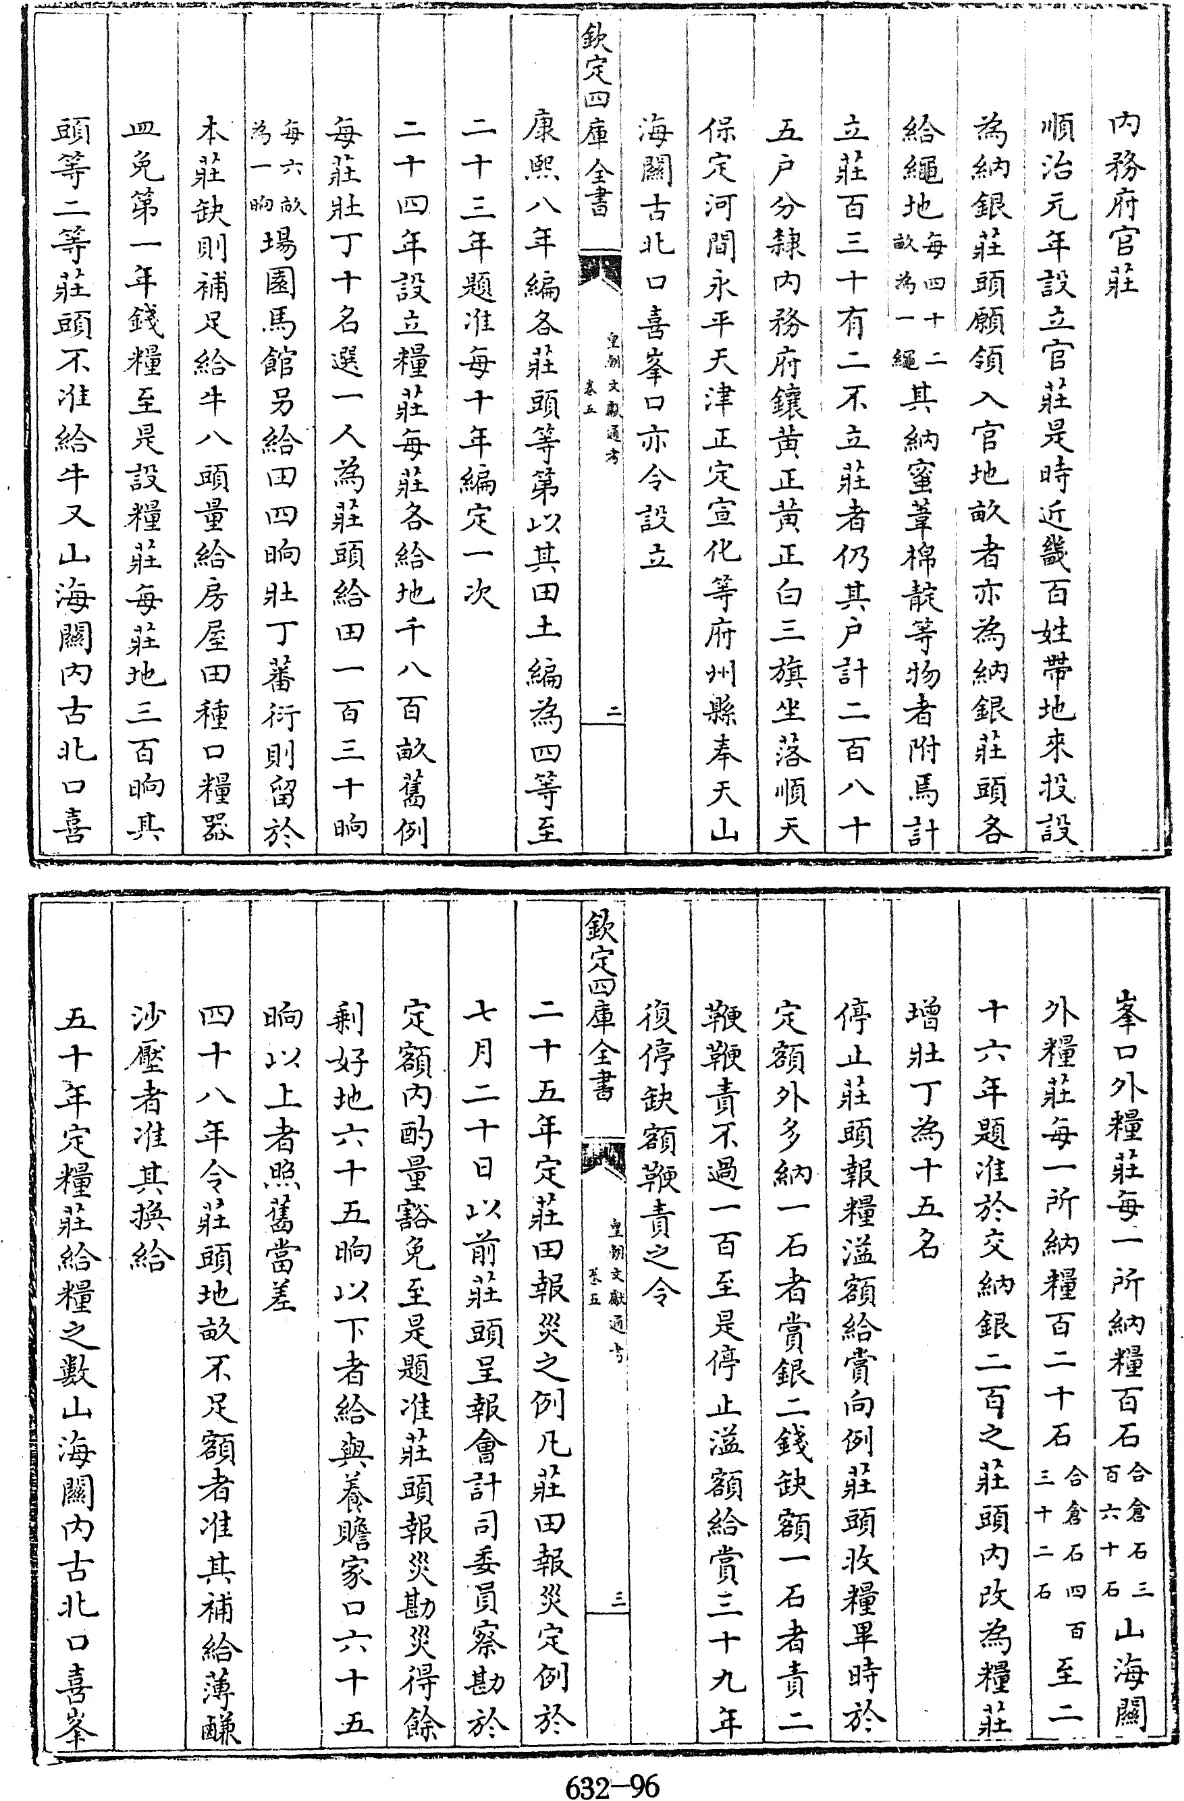 內務府官莊
順治元年設立官莊是時近畿百姓帶地來投設
為納銀莊頭願領入官地畝者亦為納銀莊頭各
給繩地每四十二畝為一繩其納蜜葦棉靛等物者附焉計
立莊百三十有二不立莊者仍其戶計二百八十
五戶分隸內務府鑲黃正黃正白三旗坐落順天
保定河間永平天津正定宣化等府州縣奉天山
海關古北口喜峯口亦令設立
欽定四庫全書
皇朝文獻通考
卷五
二
康熙八年編各莊頭等第以其田土編為四等至
二十三年題准每十年編定一次
二十四年設立糧莊每莊各給地千八百畝舊例
每莊壯丁十名選一人為莊頭給田一百三十晌
每六畝為一晌場園馬館另給田四晌壯丁蕃衍則留於
本莊缺則補足給牛八頭量給房屋田種口糧器
皿免第一年錢糧至是設糧莊每莊地三百晌其
頭等二等莊頭不准給牛又山海關內古北口喜
峯口外糧莊每一所納糧百石合倉石三百六十石山海關
外糧莊每一所納糧百二十石合倉石四百三十二石至二
十六年題准於交納銀二百之莊頭內改為糧莊
增壯丁為十五名
停止莊頭報糧溢額給賞向例莊頭收糧畢時於
定額外多納一石者賞銀二錢缺額一石者責二
鞭鞭責不過一百至是停止溢額給賞三十九年
復停缺額鞭責之令
欽定四庫全書
皇朝文獻通考
卷五
三
二十五年定莊田報災之例凡莊田報災定例於
七月二十日以前莊頭呈報會計司委員察勘於
定額內酌量豁免至是題准莊頭報災勘災得餘
剩好地六十五晌以下者給與養贍家口六十五
晌以上者照舊當差
四十八年令莊頭地畝不足額者准其補給薄鹻
沙壓者准其換給
五十年定糧莊給糧之數山海關內古北口喜峯
632-96